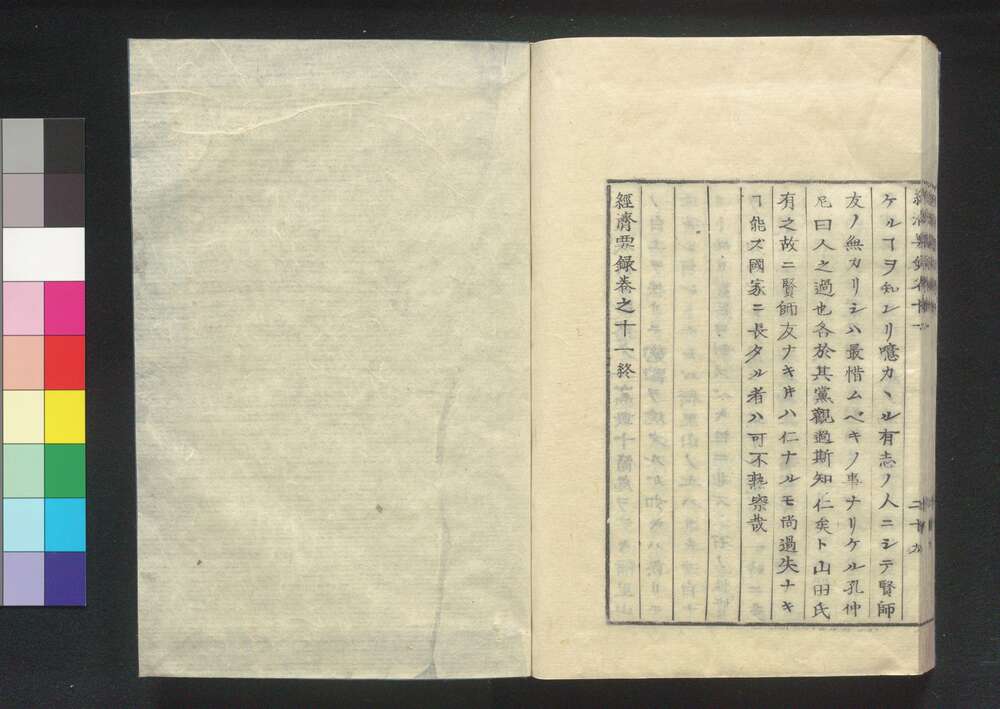 ケルヿヲ知レリ噫カヽル有志ノ人ニシテ賢師
友ノ無カリシハ最惜ムベキノ事ナリケル孔仲
尼曰人之過也各於其黨觀過斯知仁矣ト山田氏
有之故ニ賢師友ナキ𪜈ハ仁ナルモ尚過失ナキ
ヿ能ズ國家ニ長タル者ハ可不熟察哉
經濟要錄卷之十一終
二十九